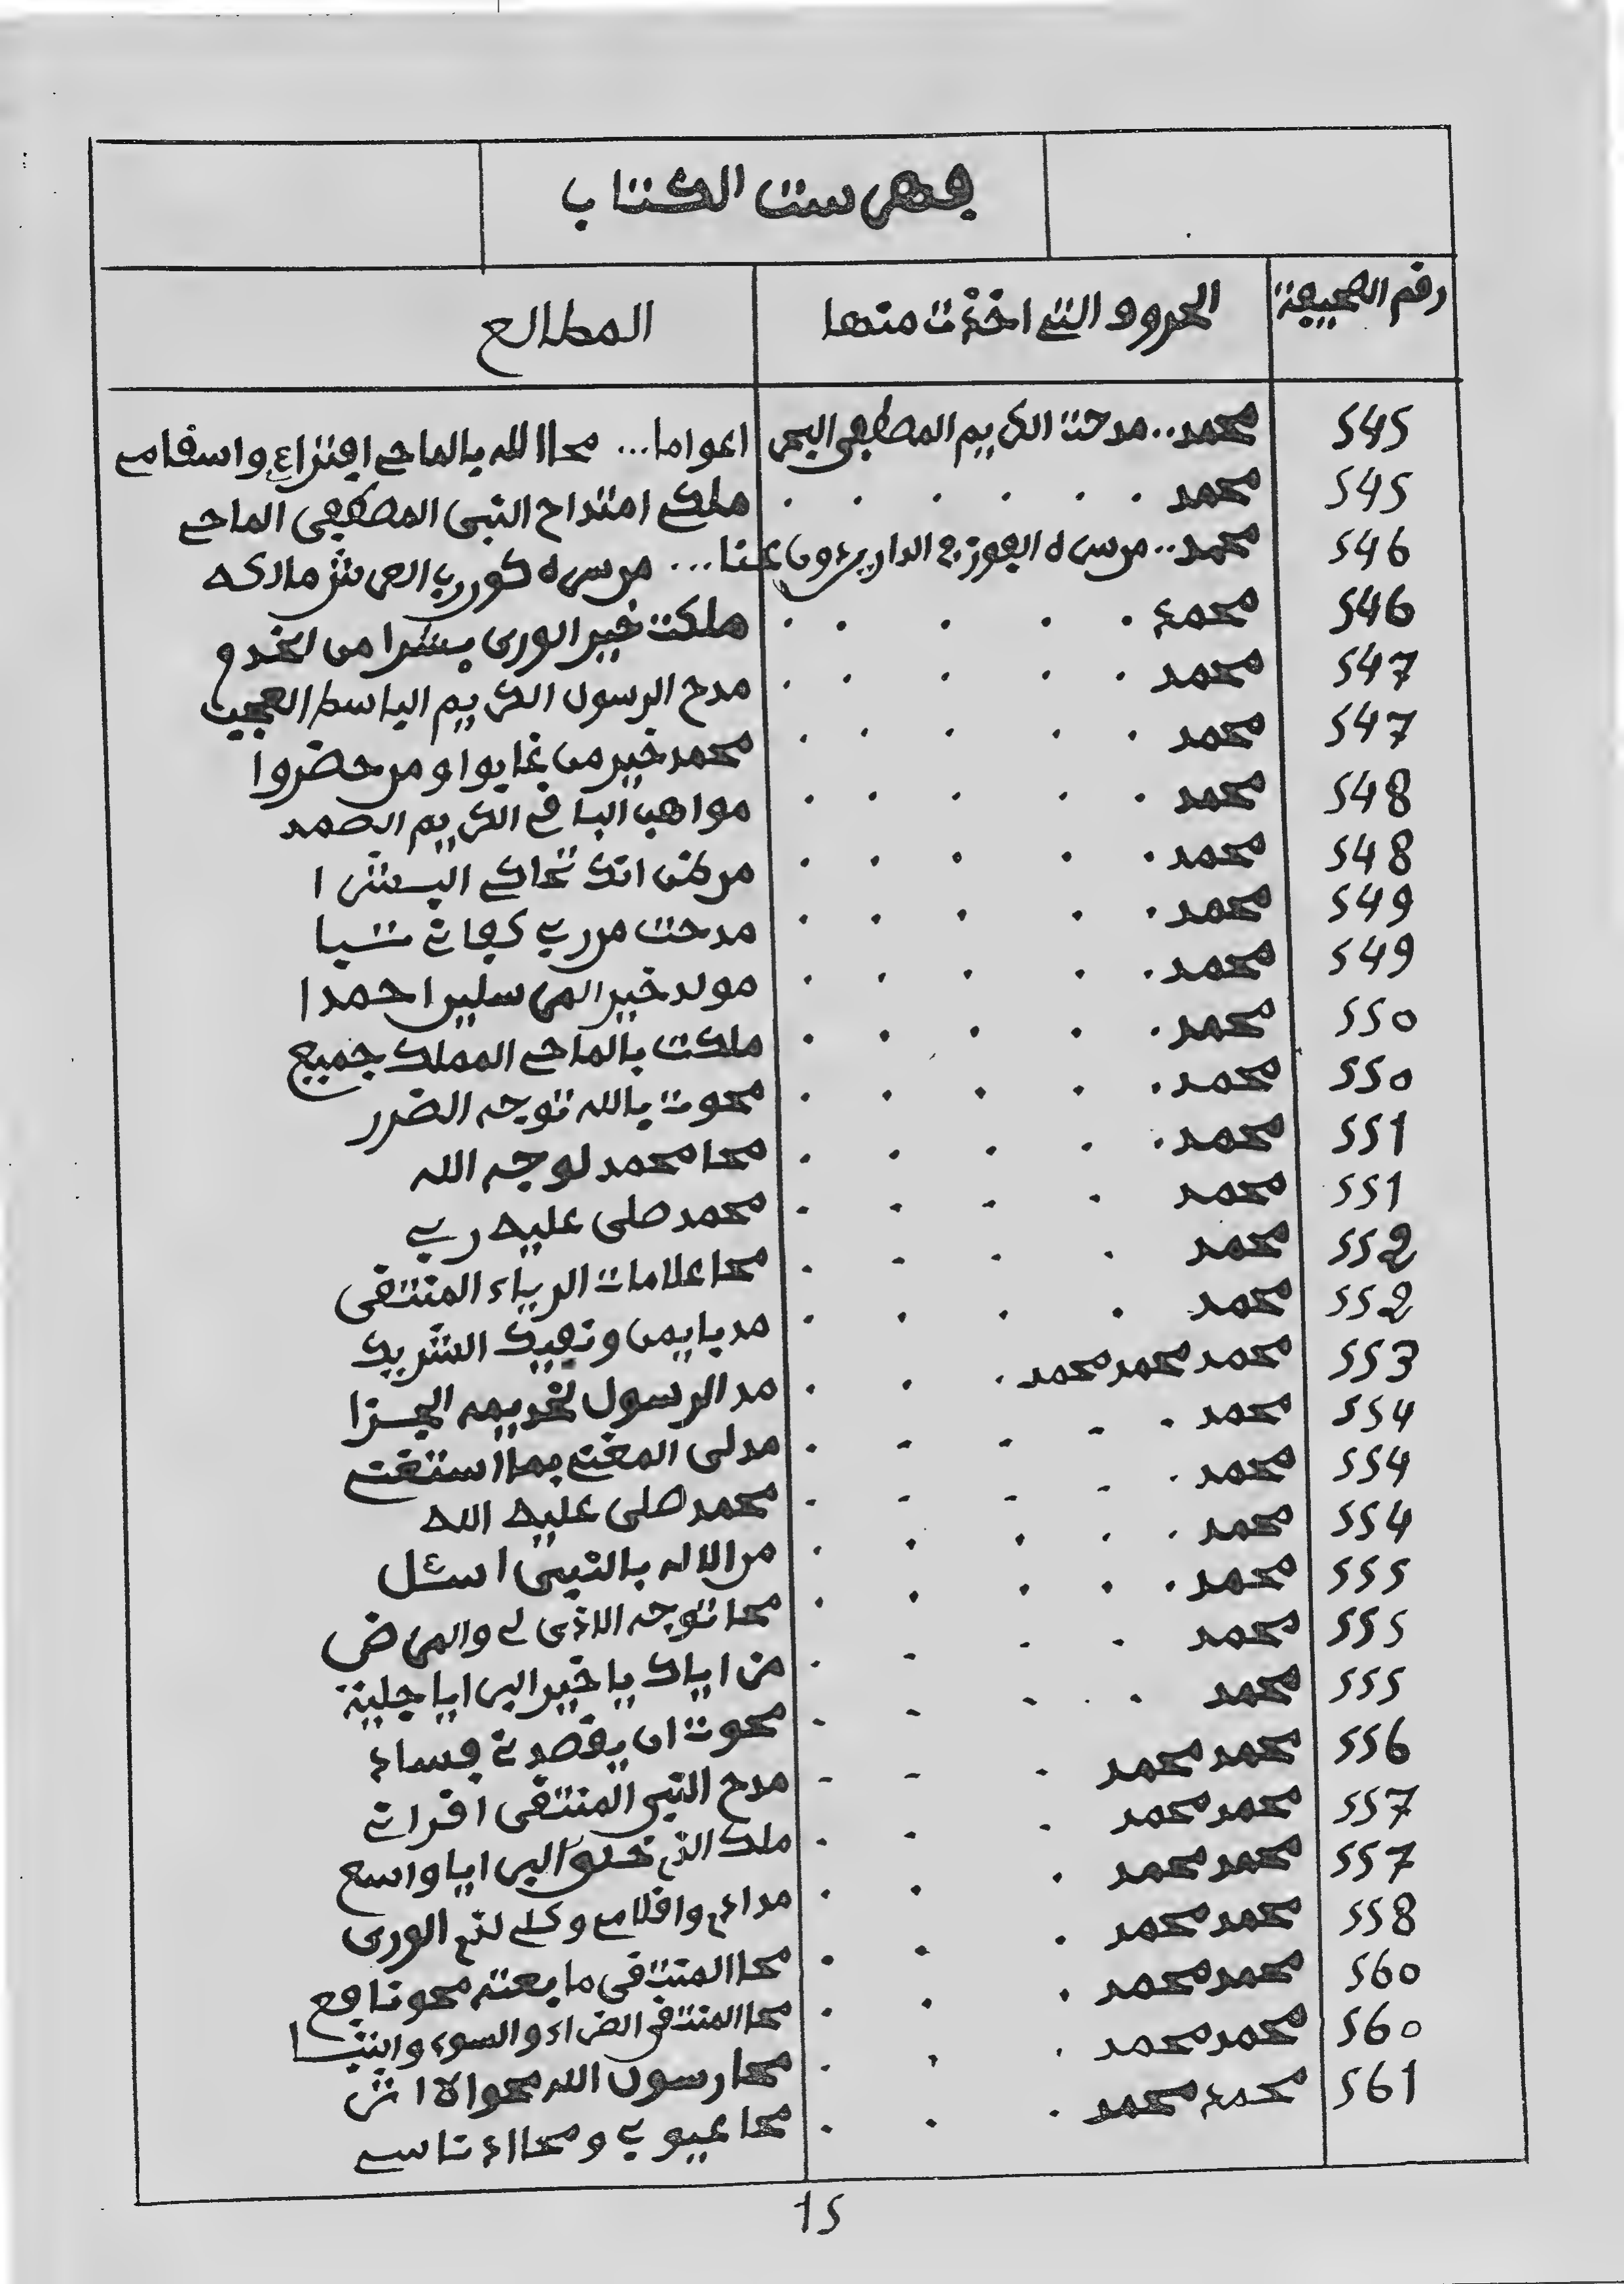 فهرست الكتاب
رقم الصحيفة الحروف التي اخذت منها المطالع
545 محمد.. مدحت الكريم المصطفى البحر اعواما... محا الله بالماحي افتراءي واسقامي
545 محمد . . . . . . ملكي امتداح النبي المصطفى الماحي
546 محمد.. من سره الفوز في الدارين دون عنا... من سره كون رب العرش مالكه
546 محمد . . . . . ملكت خير الورى بشرا من لخدم
547 محمد . . . . . مدح الرسول الكريم الباسط العجيب
547 محمد . . . . . محمد خير من غابوا ومن حضروا
548 محمد . . . . . مواهب الباقي الكريم الصمد
548 محمد . . . . . من ظن انك تحاكي البشرا
549 محمد . . . . . مدحت من ربي كفاني شيبا
549 محمد . . . . . مولد خير المرسلين احمدا
550 محمد . . . . . ملكت بالماحي المملك جميع
550 محمد . . . . . محوت بالله توجه الضرر
551 محمد . . . . . محا محمد لوجه الله
551 محمد . . . . محمد صلى عليه ربي
552 محمد . . . . محا علامات الرياء المنتقى
552 محمد . . . . مد بايمن ونفيك الشريك
553 محمد محمد محمد . . . مد الرسول لخديمه الجزا
554 محمد . . . . . مد لي المغني بما استغنى
554 محمد . . . . . محمد صلى عليه الله
554 محمد . . . . . من الاله بالنبي اسئل
555 محمد . . . . . محا توجه الاذى لي والمرض
555 محمد . . . . من اياك يا خير البرايا جلية
555 محمد . . . . . محوت ان يقصدني فساء
556 محمد محمد . . . مدح النبي المنتقى اقراني
557 محمد محمد . . . ملك الذي خلق البرايا واسع
557 محمد محمد . . . مداءي واقلامي وكلي لذي الورى
558 محمد محمد . . . محا المنتقى ما بعته محو نافع
560 محمد محمد . . . محا المنتقى الضراء والسوء وانثنا
560 محمد محمد . . . محا رسول الله محوا لا اثر
561 محمد محمد . . . محا عيوبي ومحا ادناسي
15